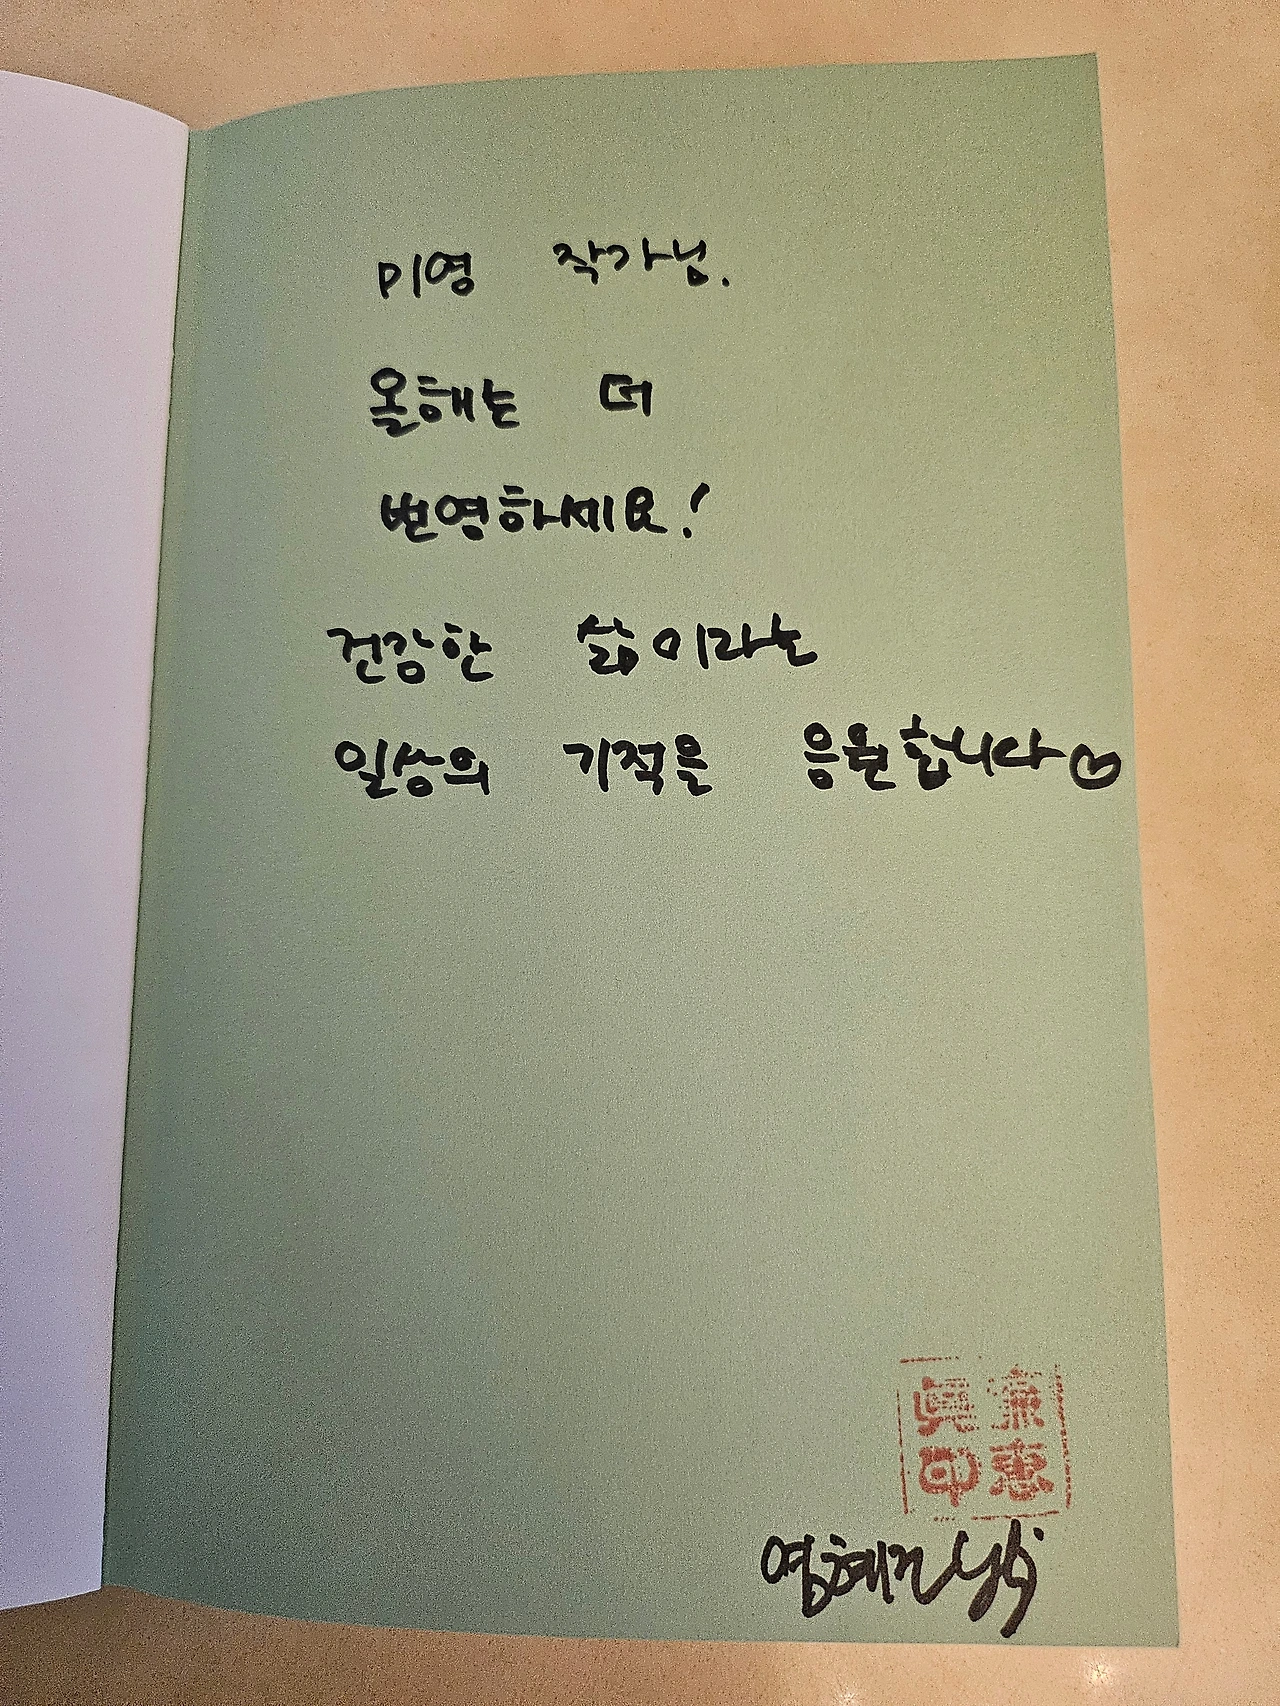 미영 작가님.
올해는 더
번영하세요!
건강한 삶이라는
일상의 기적을 응원합니다♡